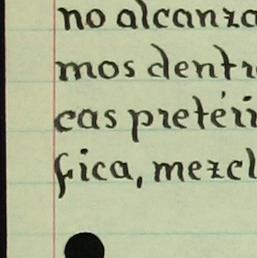 no alcanza
mos dentr
cas pretéri
fica, mezcl